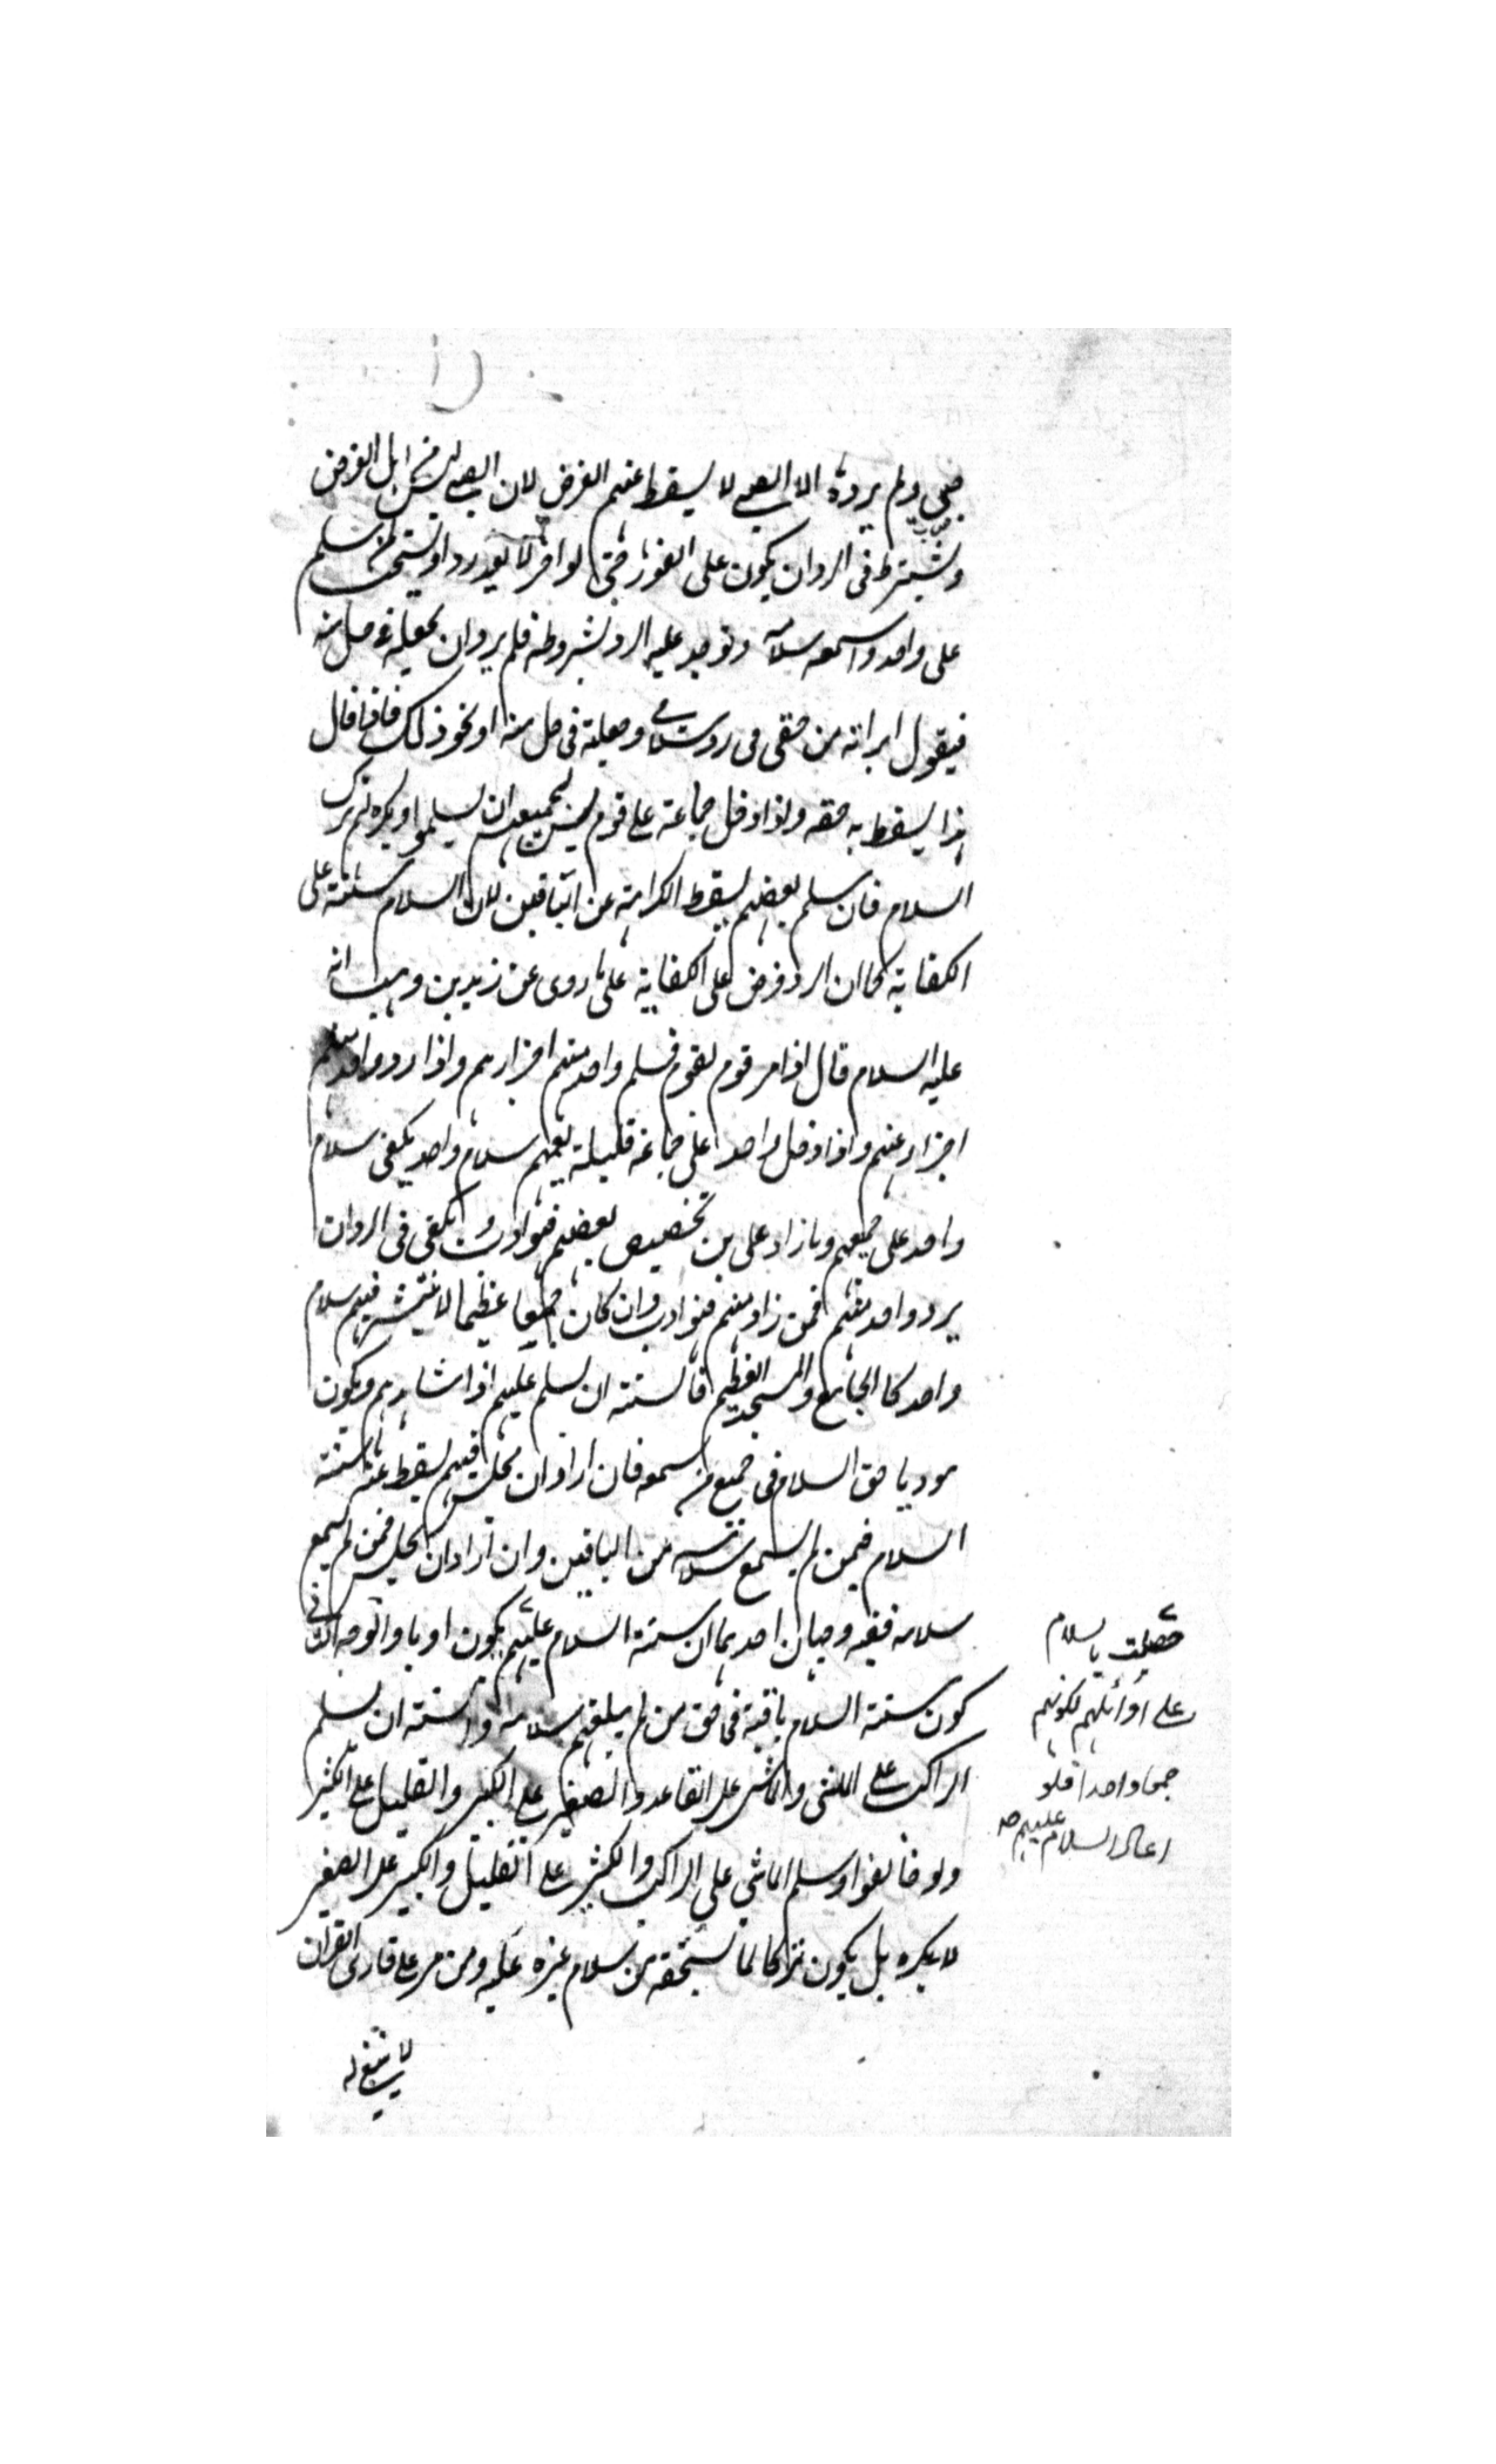 صبي ولم يرده الا الصبي لا يسقط عنهم الفرض لان الصبي ليس من اهل الفرض
ويشترط في الرد ان يكون على الفور حتى لو اخر لا يعد ردا ويستحب لمن سلم
على واحد واسمعه سلامه وتوجه عليه الرد بشروطه فلم يرد ان يجعله في حل منه
فيقول ابرأته من حقي في رد سلامي وجعلته في حل منه او نحو ذلك فاذا قال
هذا يسقط به حقه واذا دخل جماعة على قوم يسن لجميعهم ان يسلموا ويكره لهم ترك
السلام فان سلم بعضهم يسقط الكراهة عن الباقين لان السلام سنة على
الكفاية كما ان الرد فرض على الكفاية على ما روى عن زيد بن وهب انه
عليه السلام قال اذا مر قوم بقوم فسلم واحد منهم اجزاءهم واذا رد واحد منهم
اجزاء عنهم واذا دخل واحد على جماعة قليلة يعمهم سلام واحد يكفي سلام
واحد على جميعهم وما زاد على من تخصيص بعضهم فهو ادب ويكفي في الرد ان
يرد واحد منهم فمن زاد منهم فهو ادب وان كان جمعا عظيما لا ينتشر فيهم سلام
واحد كالجامع والمسجد العظيم فالسنة ان يسلم عليهم اذا شاهدهم ويكون
موديا حق السلام في جميع من سمعه فان اراد ان يجلس فيهم يسقط عنه سنة
السلام فيمن لم يسمع سلامه من الباقين وان اراد ان يجلس فمن لم يسمع
سلامه ففيه وجهان احدهما ان سنة السلام عليهم يكون اوبا والوجه الثاني
كون سنة السلام باقية في حق من لم يبلغهم سلامه والسنة ان يسلم
الراكب على الماشي والماشي على القاعد والصغير على الكبير والقليل على الكثير
ولو خالفوا وسلم الماشي على الراكب والكثير على القليل والكبير على الصغير
لا يكره بل يكون تركا لما يستحقه من سلام غيره عليه ومن مر على قارئ القران
لا ينبغي له
حصلت بالسلام
على اوائلهم لكونهم
جمعا واحدا فلو
اعاد السلام عليهم صح